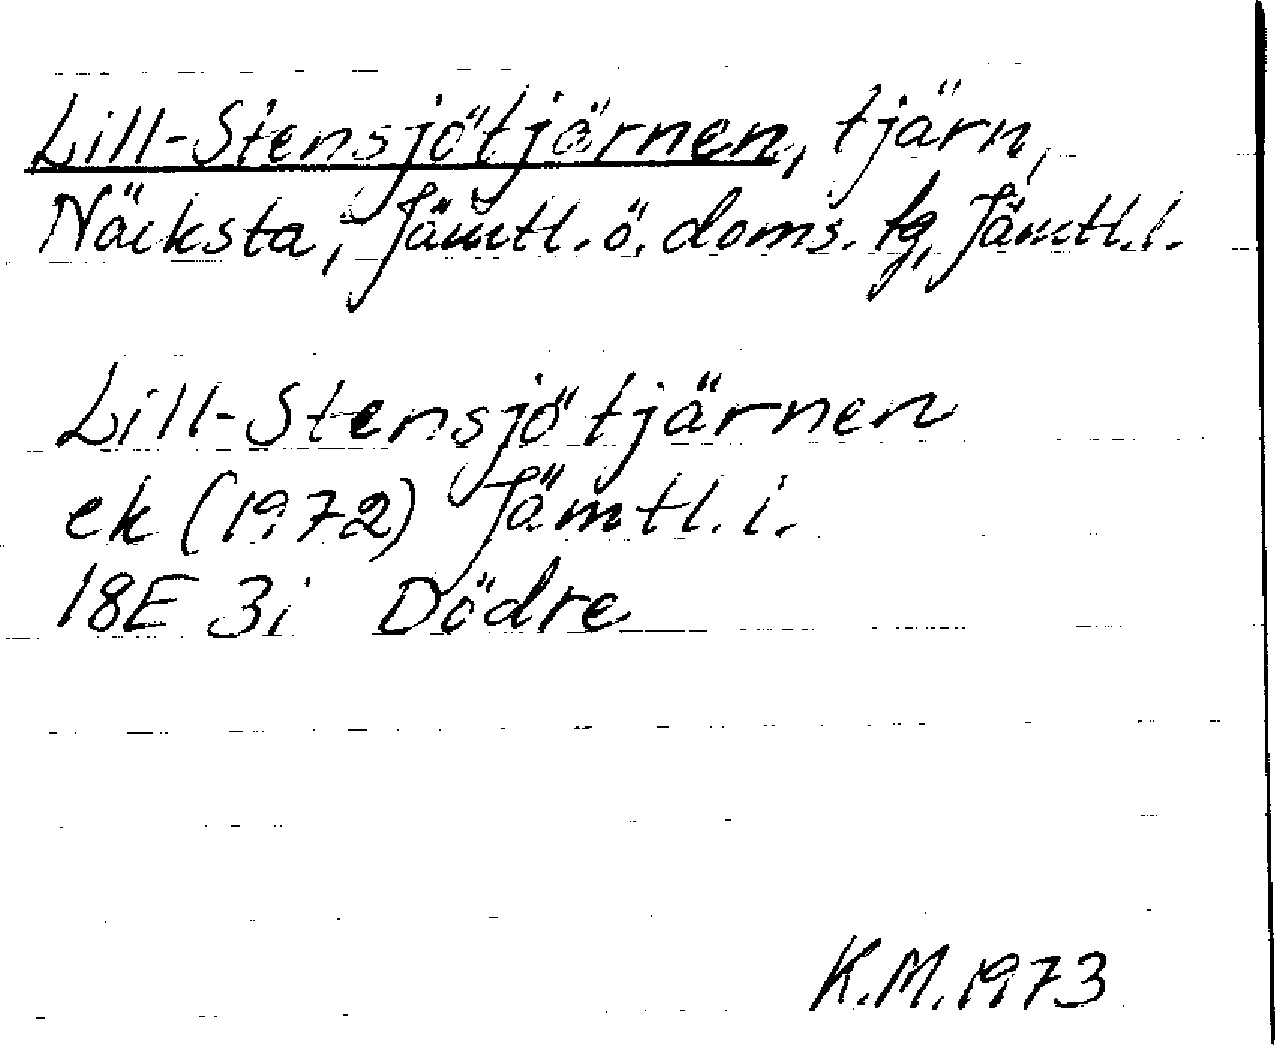 Lill-Stensjötjärnen, tjärn,
Näcksta, Jämtl. ö. doms. tg, Jämtl. l.
Lill-Stensjötjärnen
ek (1972) Jämtl. l.
18E 3i Dödre
K.M. 1973